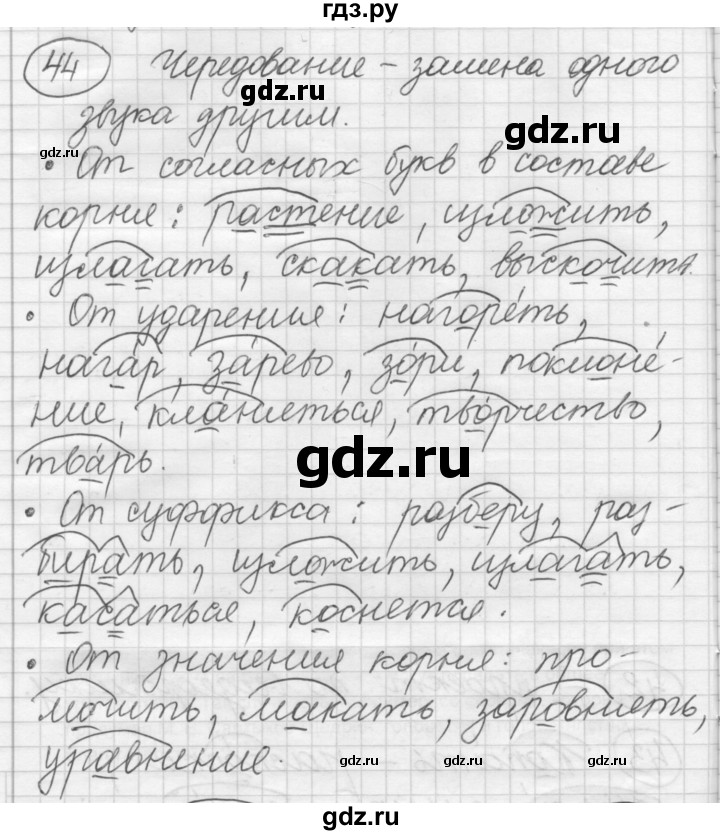 гдз.ру
44 Чередование – замена одного
gdz.ru
звука другим.
gdz.ru
gdz.ru
• От согласных букв в составе
корня: растение, изложить,
излагать, скакать, выскочить.
• От ударения: нагоре́ть,
нага́р, за́рево, зо́ри, поклоне́-
ние, кла́няеться, тво́рчество,
тва́рь.
gdz.ru
• От суффикса: разберу, раз-
бирать, изложить, излагать,
касаться, коснется.
• От значения корня: про-
мочить, макать, заровнять,
уравнение.
gdz.ru
gdz.ru
gdz.ru
gdz.ru